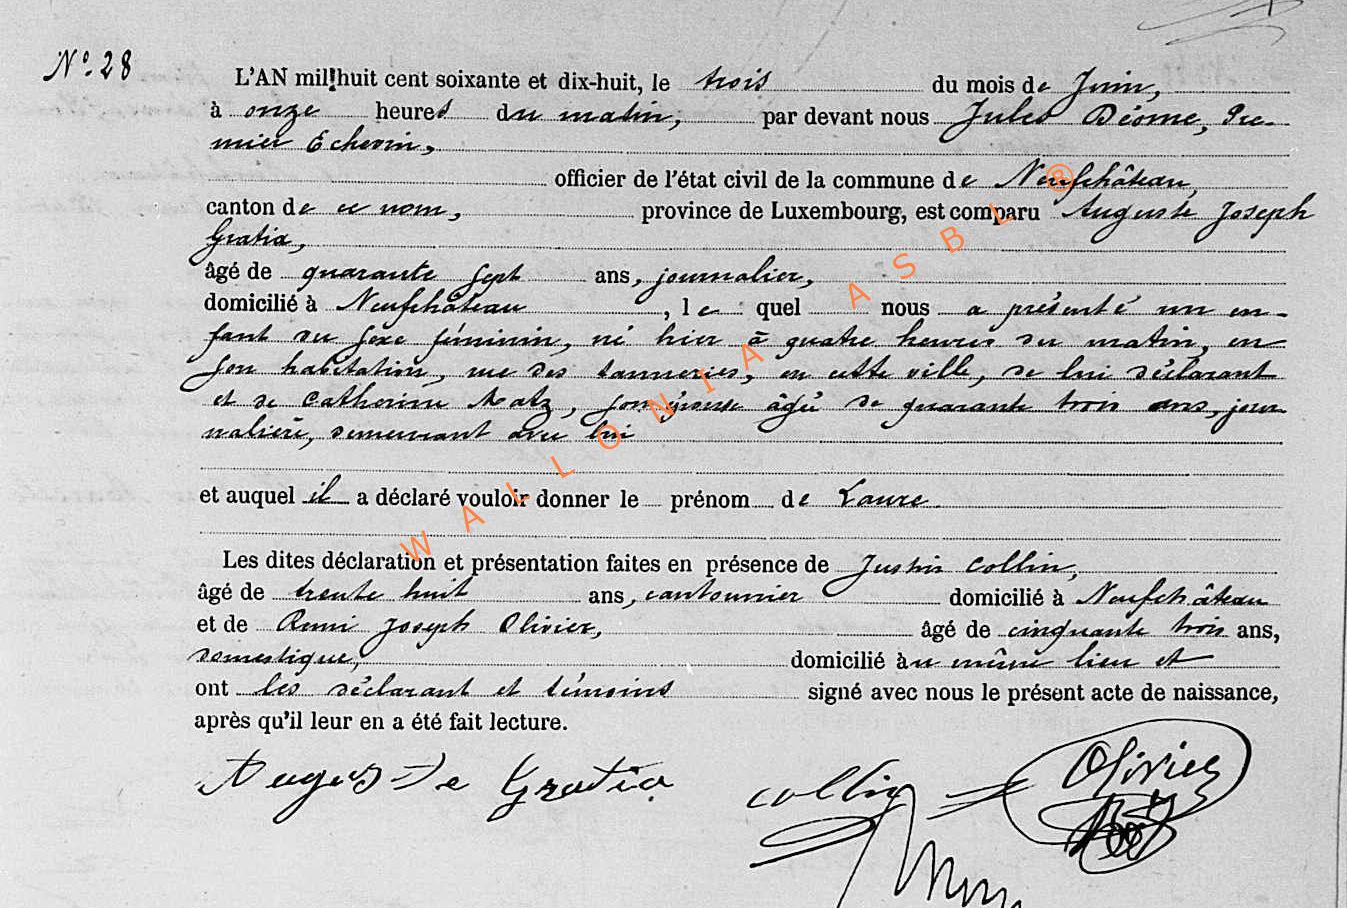 N° 28
L'AN mil huit cent soixante et dix-huit, le trois du mois de Juin,
à onze heures du matin, par devant nous Jules Déome, Pre-
mier Echevin,
officier de l'état civil de la commune de Neufchâteau,
canton de ce nom, province de Luxembourg, est comparu Auguste Joseph
Gratia,
âgé de quarante sept ans, journalier,
domicilié à Neufchâteau, le quel nous a présenté un en-
fant du sexe féminin, né hier à quatre heures du matin, en
son habitation, rue des tanneries, en cette ville, de lui déclarant
et de Catherine Motz, son épouse âgée de quarante trois ans, jour
nalière, demeurant avec lui
et auquel il a déclaré vouloir donner le prénom de Laure.
Les dites déclaration et présentation faites en présence de Justin Collin,
âgé de trente huit ans, cantonnier domicilié à Neufchâteau
et de Remi Joseph Olivier, âgé de cinquante trois ans,
domestique, domicilié au même lieu et
ont les déclarant et témoins signé avec nous le présent acte de naissance,
après qu'il leur en a été fait lecture.
Auguste Gratia collin Olivier
WALLONIA ASBL ®